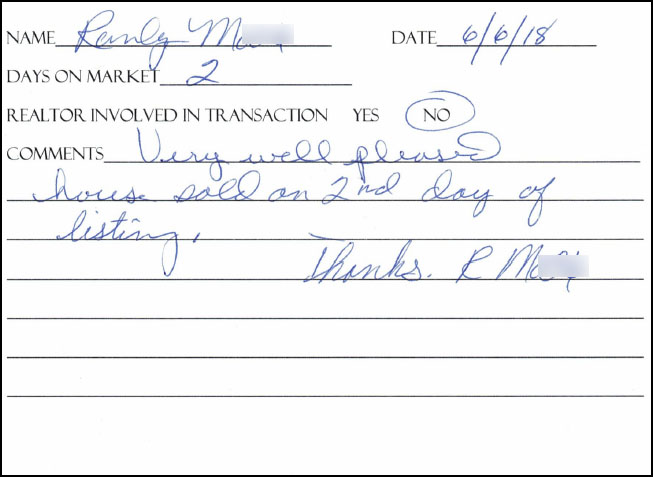 NAME Randy M
DATE 6/6/18
DAYS ON MARKET 2
REALTOR INVOLVED IN TRANSACTION YES NO
COMMENTS Very well pleased
house sold on 2nd day of
listing.
Thanks. R M